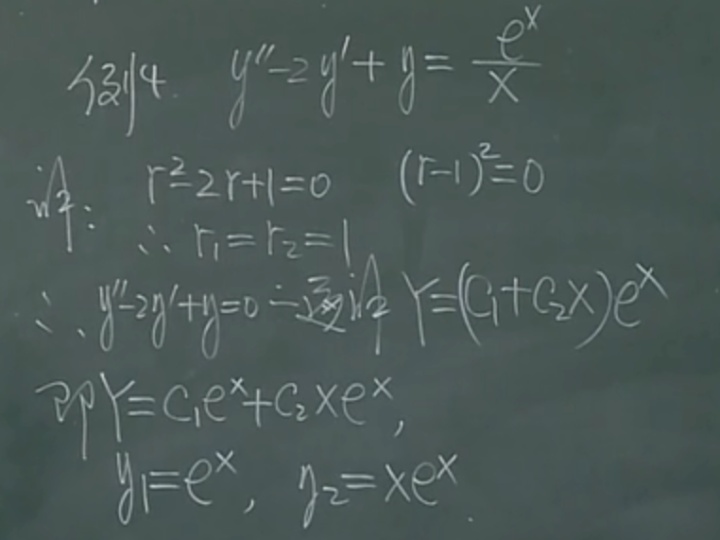 例4. y″-2y′+y=e^x/x
解: r²-2r+1=0 (r-1)²=0
∴ r₁=r₂=1
∴ y″-2y′+y=0 通解 Y=(C₁+C₂x)e^x
即Y=C₁e^x+C₂xe^x,
y₁=e^x, y₂=xe^x.